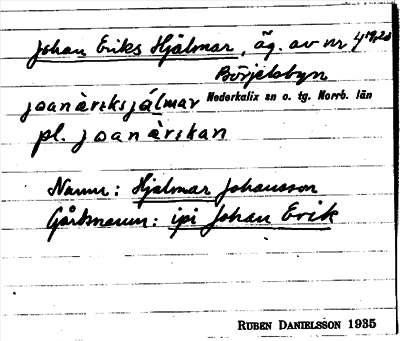 Johan Eriks Hjälmar, äg. av nr 4 19,20
Börjelsbyn
joanàriksjálmar Nederkalix sn o. tg. Norrb. län
pl. joanàrikan
Namn: Hjalmar Johansson
Gårdsnamn: ipi Johan Erik
RUBEN DANIELSSON 1935